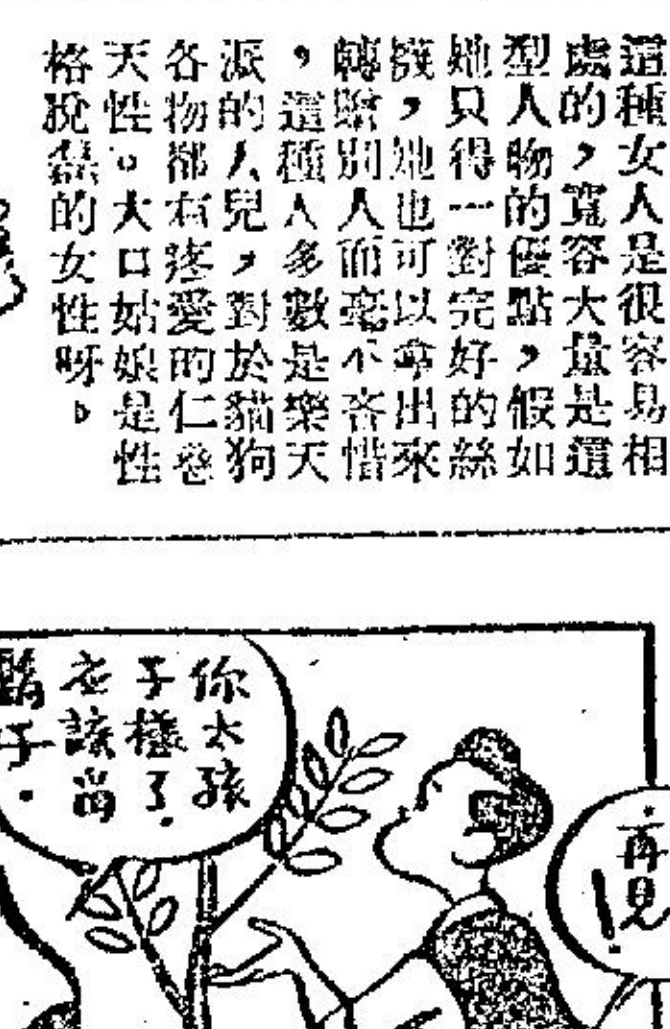 這種女人是很容易相
處的，寬容大量是這
型人物的優點，假如
她只得一對完好的絲
襪，她也可以拿出來
轉贈別人而毫不吝惜
，這種人多數是樂天
派的人兒，對於貓狗
各物都有疼愛的仁
天性。大口姑娘是性
格脫的女性呀。
再見！
你太孩
子樣了.
應當
子.